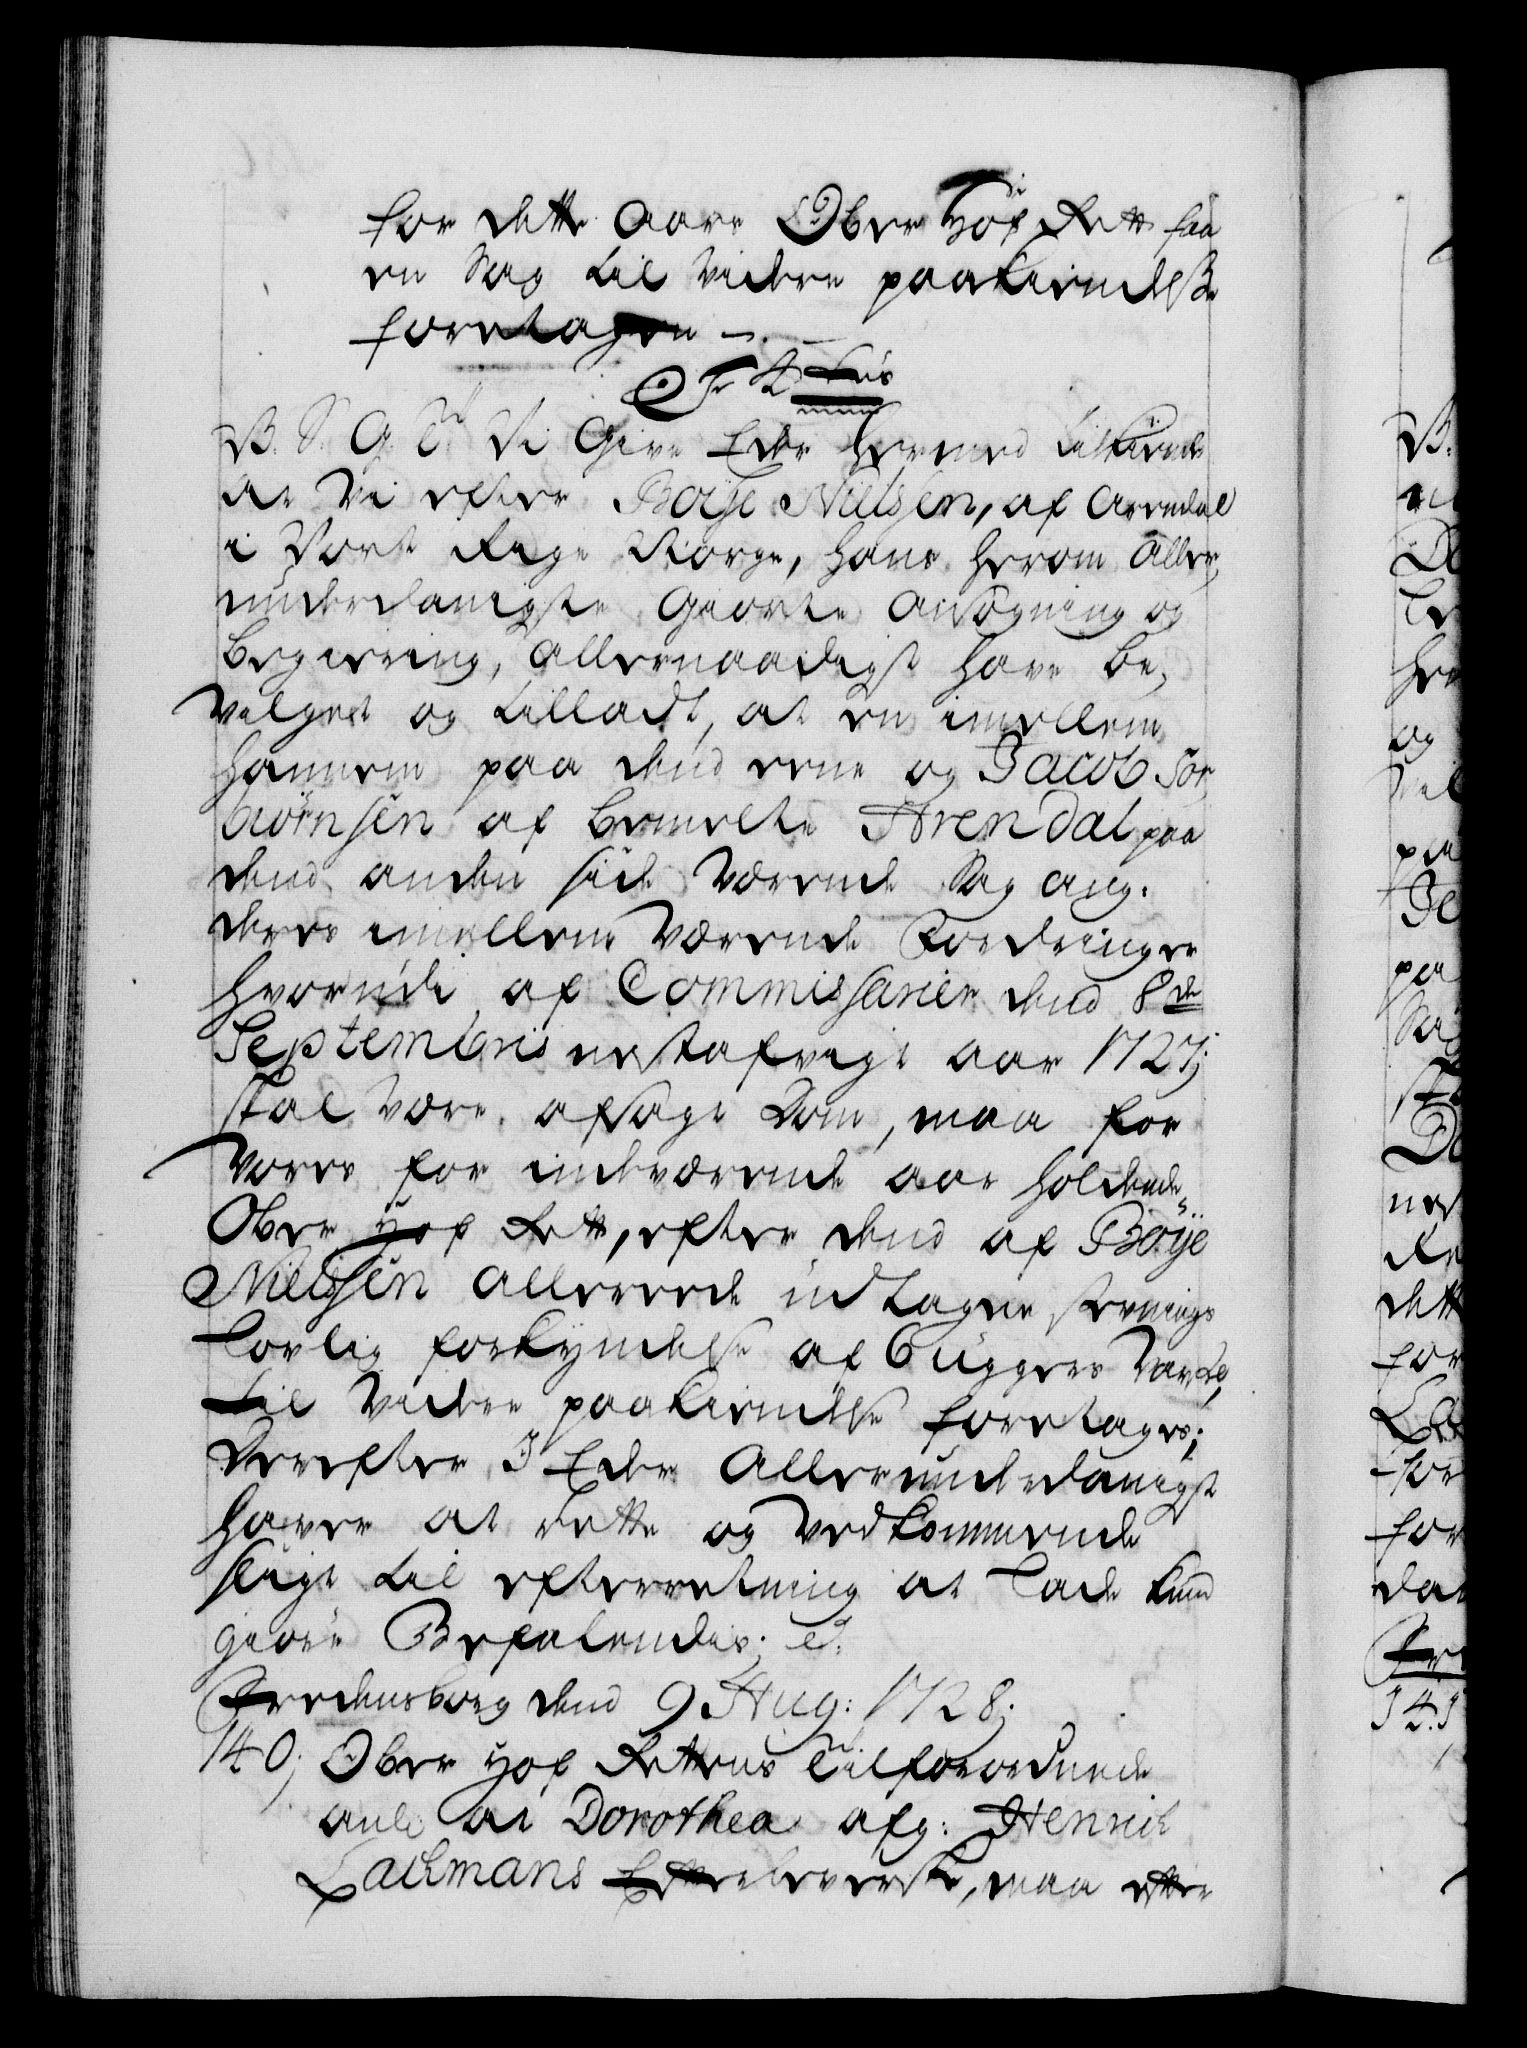 for dette Aars Ober Hof Rett faa
en Sag til videre paakiendelße
foretagen —.
Fr 4tus
B. S. G. T. Vi Give Eder hermed tilkiende
At Vi efter Boÿe Nielsen, af Arendal
i Vort Rige Norge, hans herom Aller,
underdanigste Giorte Ansøgning og
Begiering, Allernaadigst have be,
vilget og tilladt, at en imellem
hannem paa dend eene og Jacob Tor,
biörnsen af bemelte Arendal paa
dend anden side Værende Sag ang.
deris imellem Værende Fordringer
hvorudi af Commissarier dend 8de
Septembris nestafvigt aar 1727;
skal være afsagt Dom, maa for
Vores for indeværende aar holdende
Ober Hof Rett, efter dend af Boÿe
Nielsen Allereede udtagne stevnings
lovlig forkyndelse af Byggers Værke,
til videre paakiendelse foretages;
Derefter I Eder Allerunderdanigst
haver at rette og Vedkommende
sligt til efterretning at lade kund
giöre Befalendes; etc:
Fredensborg dend 9 Aug: 1728;
140; Ober Hof Rettens Tilforordnede
anl: at Dorothea afg: Henrich
Lachmans Efterleverske, maa efter